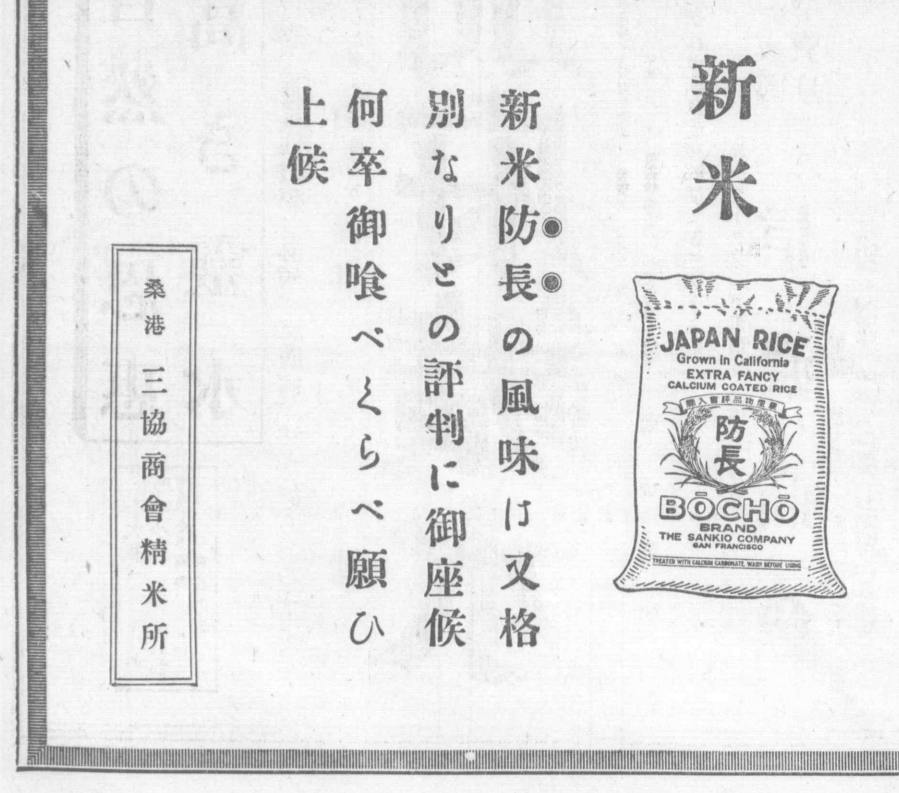 新米
JAPAN RICE
Grown in California
EXTRA FANCY
CALCIUM COATED RICE
防長
BŌCHŌ
BRAND
THE SANKIO COMPANY
SAN FRANCISCO
TREATED WITH CALCIUM CARBONATE, WASH BEFORE USING
新米防長の風味は又格
別なりとの評判に御座候
何卒御喰べくらべ願ひ
上候
桑港 三協商會精米所